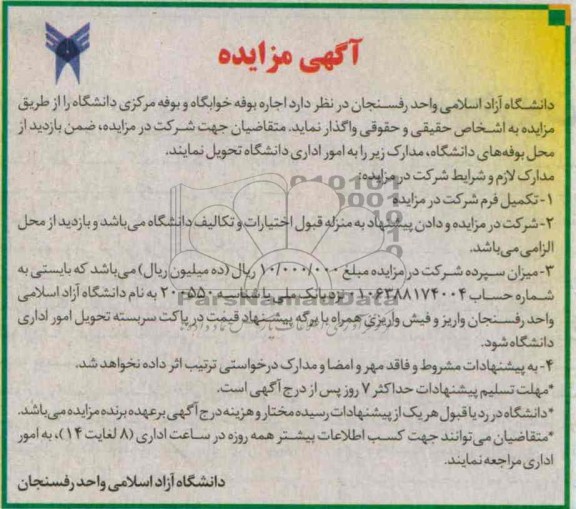 آگهی مزایده
دانشگاه آزاد اسلامی واحد رفسنجان در نظر دارد اجاره بوفه خوابگاه و بوفه مرکزی دانشگاه را از طریق
مزایده به اشخاص حقیقی و حقوقی واگذار نماید. متقاضیان جهت شرکت در مزایده، ضمن بازدید از
محل بوفه‌های دانشگاه، مدارک زیر را به امور اداری دانشگاه تحویل نمایند.
مدارک لازم و شرایط شرکت در مزایده:
۱- تکمیل فرم شرکت در مزایده
۲- شرکت در مزایده و دادن پیشنهاد به منزله قبول اختیارات و تکالیف دانشگاه می‌باشد و بازدید از محل
الزامی می‌باشد.
۳- میزان سپرده شرکت در مزایده مبلغ ۱۰/۰۰۰/۰۰۰ ریال (ده میلیون ریال) می‌باشد که بایستی به
شماره حساب نزد بانک ملی با شناسه ۲۰۰۵۵۰ به نام دانشگاه آزاد اسلامی
واحد رفسنجان واریز و فیش واریزی همراه با برگه پیشنهاد قیمت در پاکت سربسته تحویل امور اداری
دانشگاه شود.
۴- به پیشنهادات مشروط و فاقد مهر و امضا و مدارک درخواستی ترتیب اثر داده نخواهد شد.
*مهلت تسلیم پیشنهادات حداکثر ۷ روز پس از درج آگهی است.
*دانشگاه در رد یا قبول هر یک از پیشنهادات رسیده مختار و هزینه درج آگهی بر عهده برنده مزایده می‌باشد.
*متقاضیان می‌توانند جهت کسب اطلاعات بیشتر همه روزه در ساعت اداری (۸ لغایت ۱۴)، به امور
اداری مراجعه نمایند.
دانشگاه آزاد اسلامی واحد رفسنجان
ParsNamadData